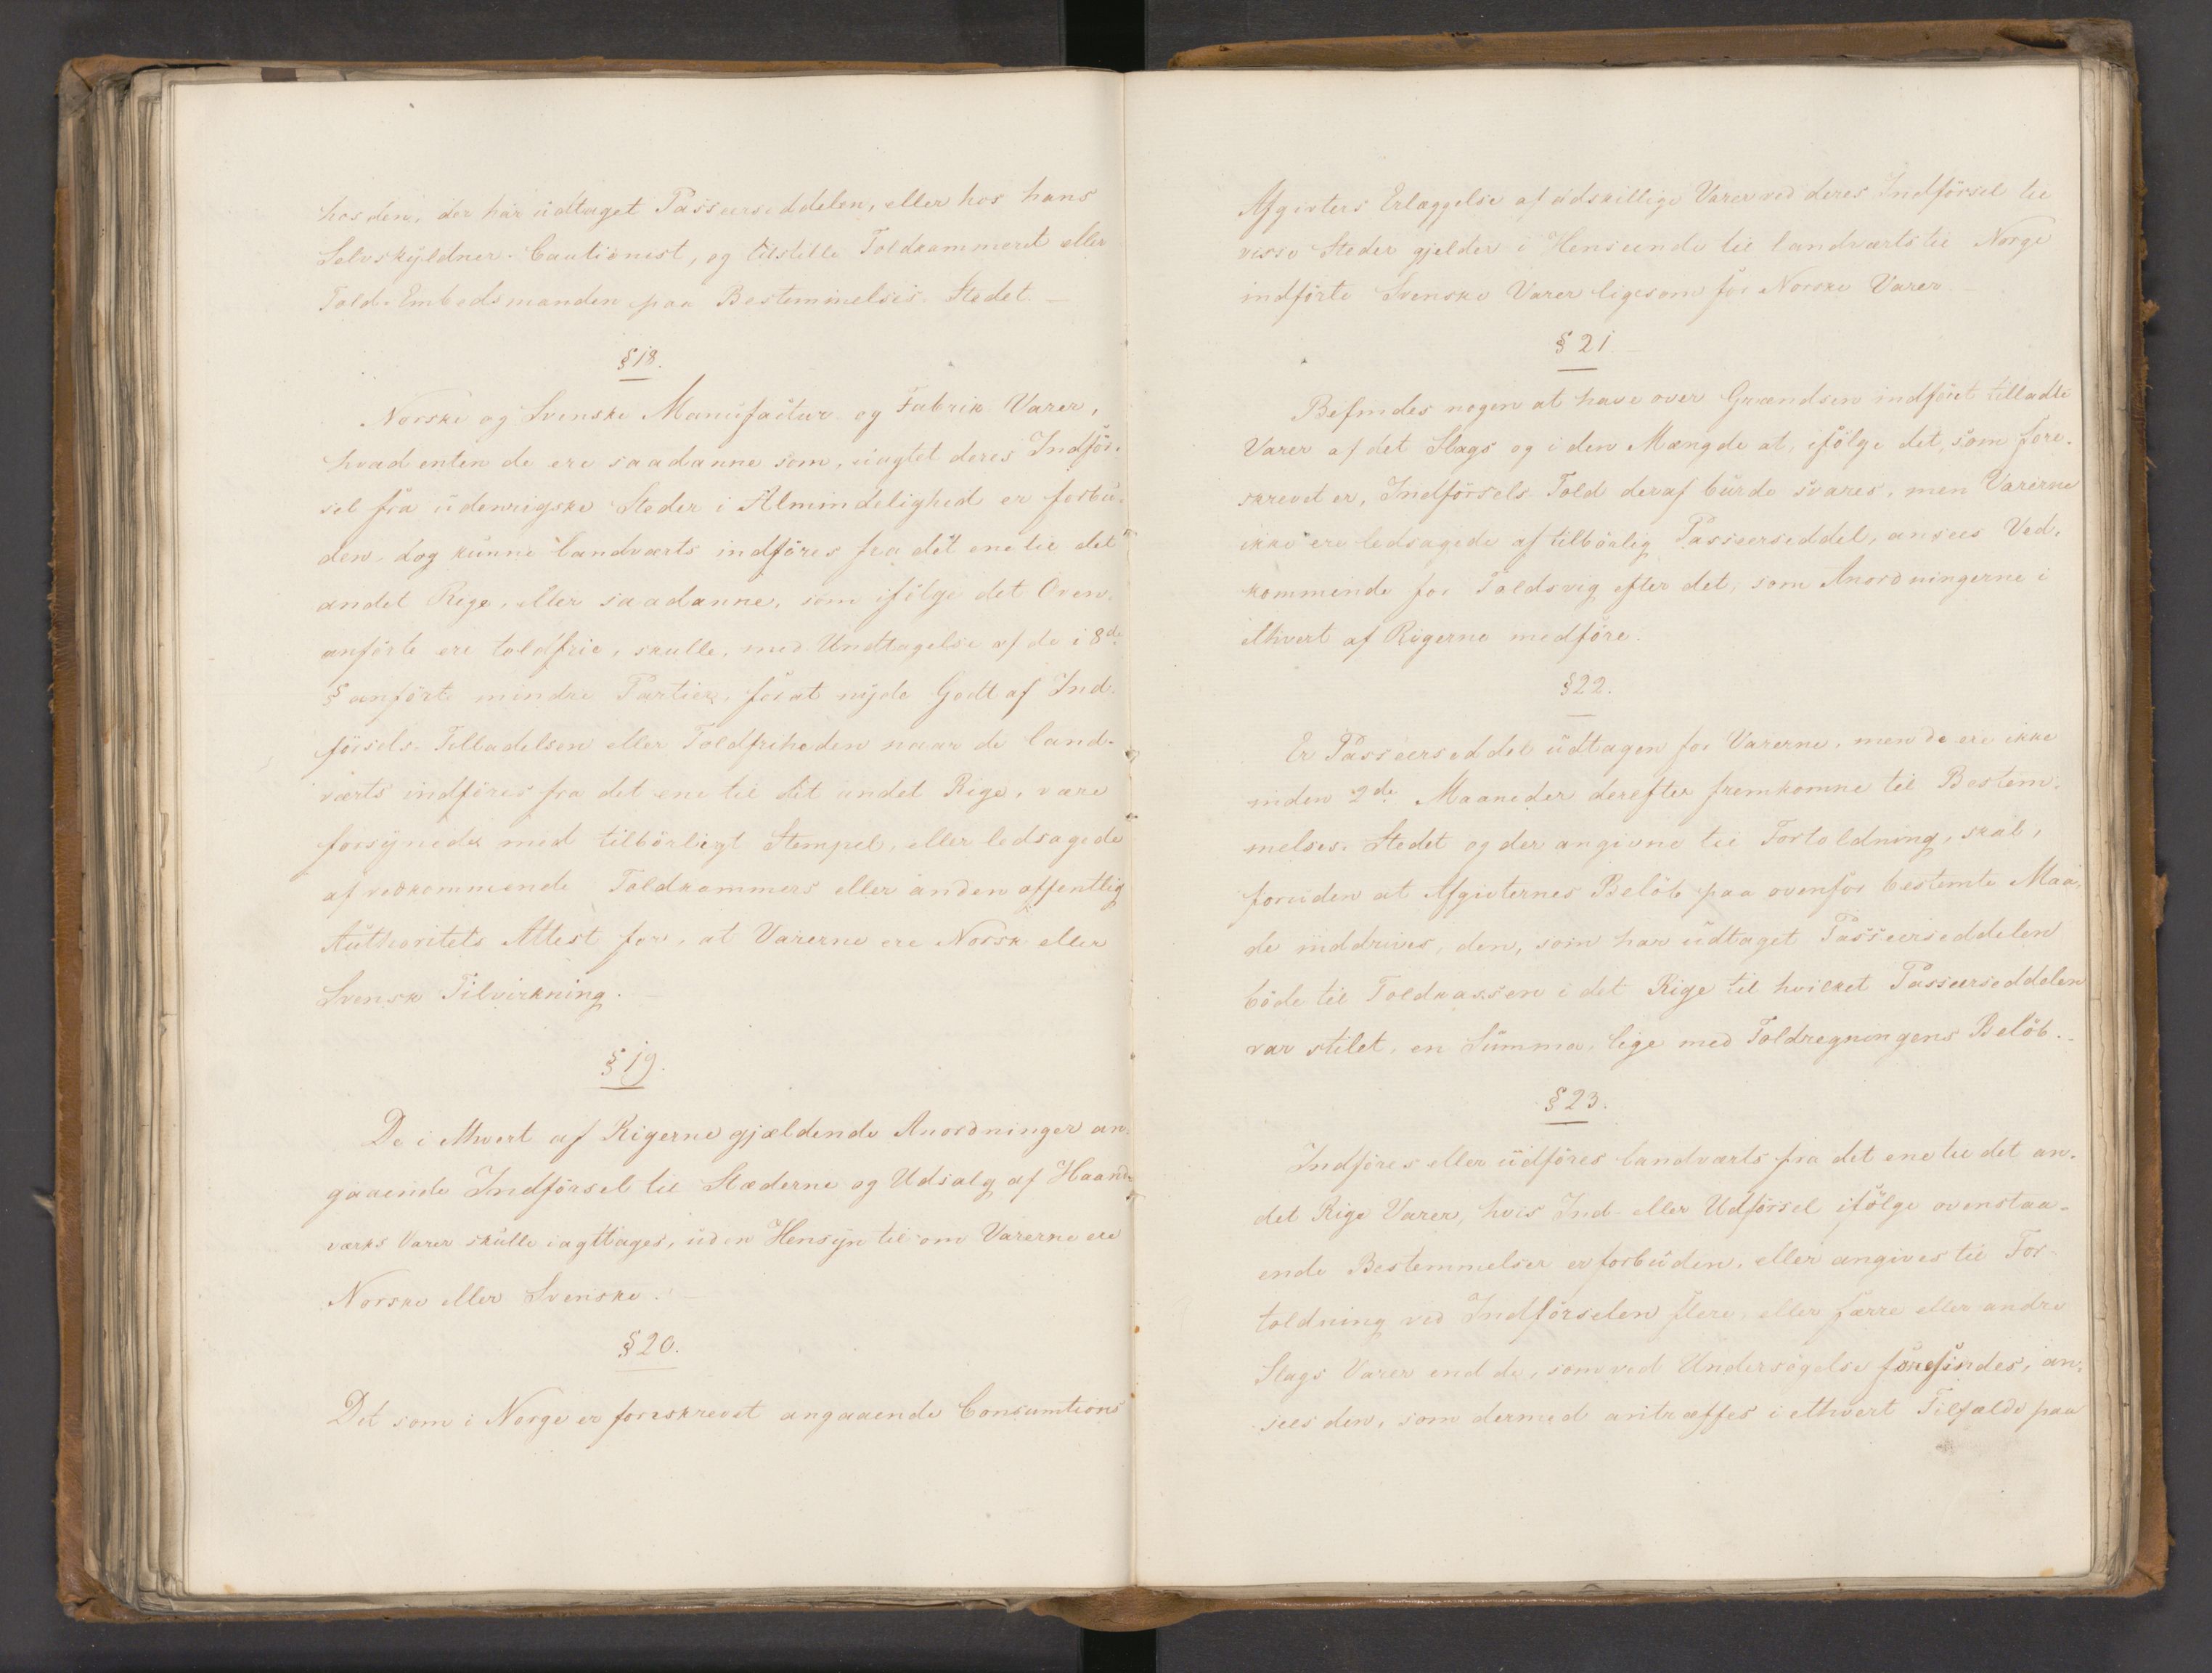 hos den, der har udtaget Passeerseddelen, eller hos hans
Selvskyldner-Cautionist, og tilstille Toldkammeret eller
Told-Embedsmanden paa Bestemmelses-Stedet. —
§ 18.
Norske og Svenske Manufactur- og Fabrik Varer,
hvad enten de ere saadanne som, uagtet deres Indför-
sel fra udenrigske Steder i Almindelighed er forbu-
den, dog kunne landværts indföres fra det ene til det
andet Rige, eller saadanne, som ifölge det Oven-
anförte ere toldfrie, skulle, med Undtagelse af de i 8de
§ anförte mindre Partier, for at nyde Godt af Ind-
försels-Tilladelsen eller Toldfriheden naar de land-
værts indföres fra det ene til det andet Rige, være
forsynede med tilbörligt Stempel, eller ledsagede
af vedkommende Toldkammers eller anden offentlig
Authoritets Attest for, at Varerne ere Norsk eller
Svensk Tilvirkning. —
§ 19.
De i ethvert af Rigerne gjældende Anordninger an-
gaaende Indförsel til Stæderne og Udsalg af Haand-
værks Varer skulle iagttages, uden Hensyn til om Varerne ere
Norske eller Svenske. —
§ 20.
Det som i Norge er foreskrevet angaaende Consumtions
Afgivters Erlæggelse af adskillige Varer ved deres Indförsel til
visse Steder gjelder i Henseende til landværts til Norge
indförte Svenske Varer ligesom for Norske Varer. —
§ 21. —
Befindes nogen at have over Grændsen indföret tilladte
Varer af det Slags og i den Mængde at, ifölge det, som fore-
skrevet er, Indförsels Told deraf burde svares, men Varerne
ikke ere ledsagede af tilbörlig Passeerseddel, ansees Ved-
kommende for Toldsvig efter det, som Anordningerne i
ethvert af Rigerne medföre.
§ 22.
Er Passeerseddel udtagen for Varerne, men de ere ikke
inden 2de Maaneder derefter fremkomne til Bestem-
melses-Stedet og der angivne til Fortoldning, skal,
foruden at Afgivternes Belöb paa ovenfor bestemte Maa-
de inddrives, den, som har udtaget Passeerseddelen
böde til Toldkassen i det Rige til hvilket Passeerseddelen
var stilet, en Summa, lige med Toldregningens Belöb. —
§ 23.
Indföres eller udföres landværts fra det ene til det an-
det Rige Varer, hvis Ind- eller Udförsel ifölge ovenstaa-
ende Bestemmelser er forbuden, eller angives til For-
toldning ved Indförselen flere, eller færre eller andre
Slags Varer end de, som ved Undersögelse forefindes, an-
sees den, som dermed antræffes i ethvert Tilfælde paa